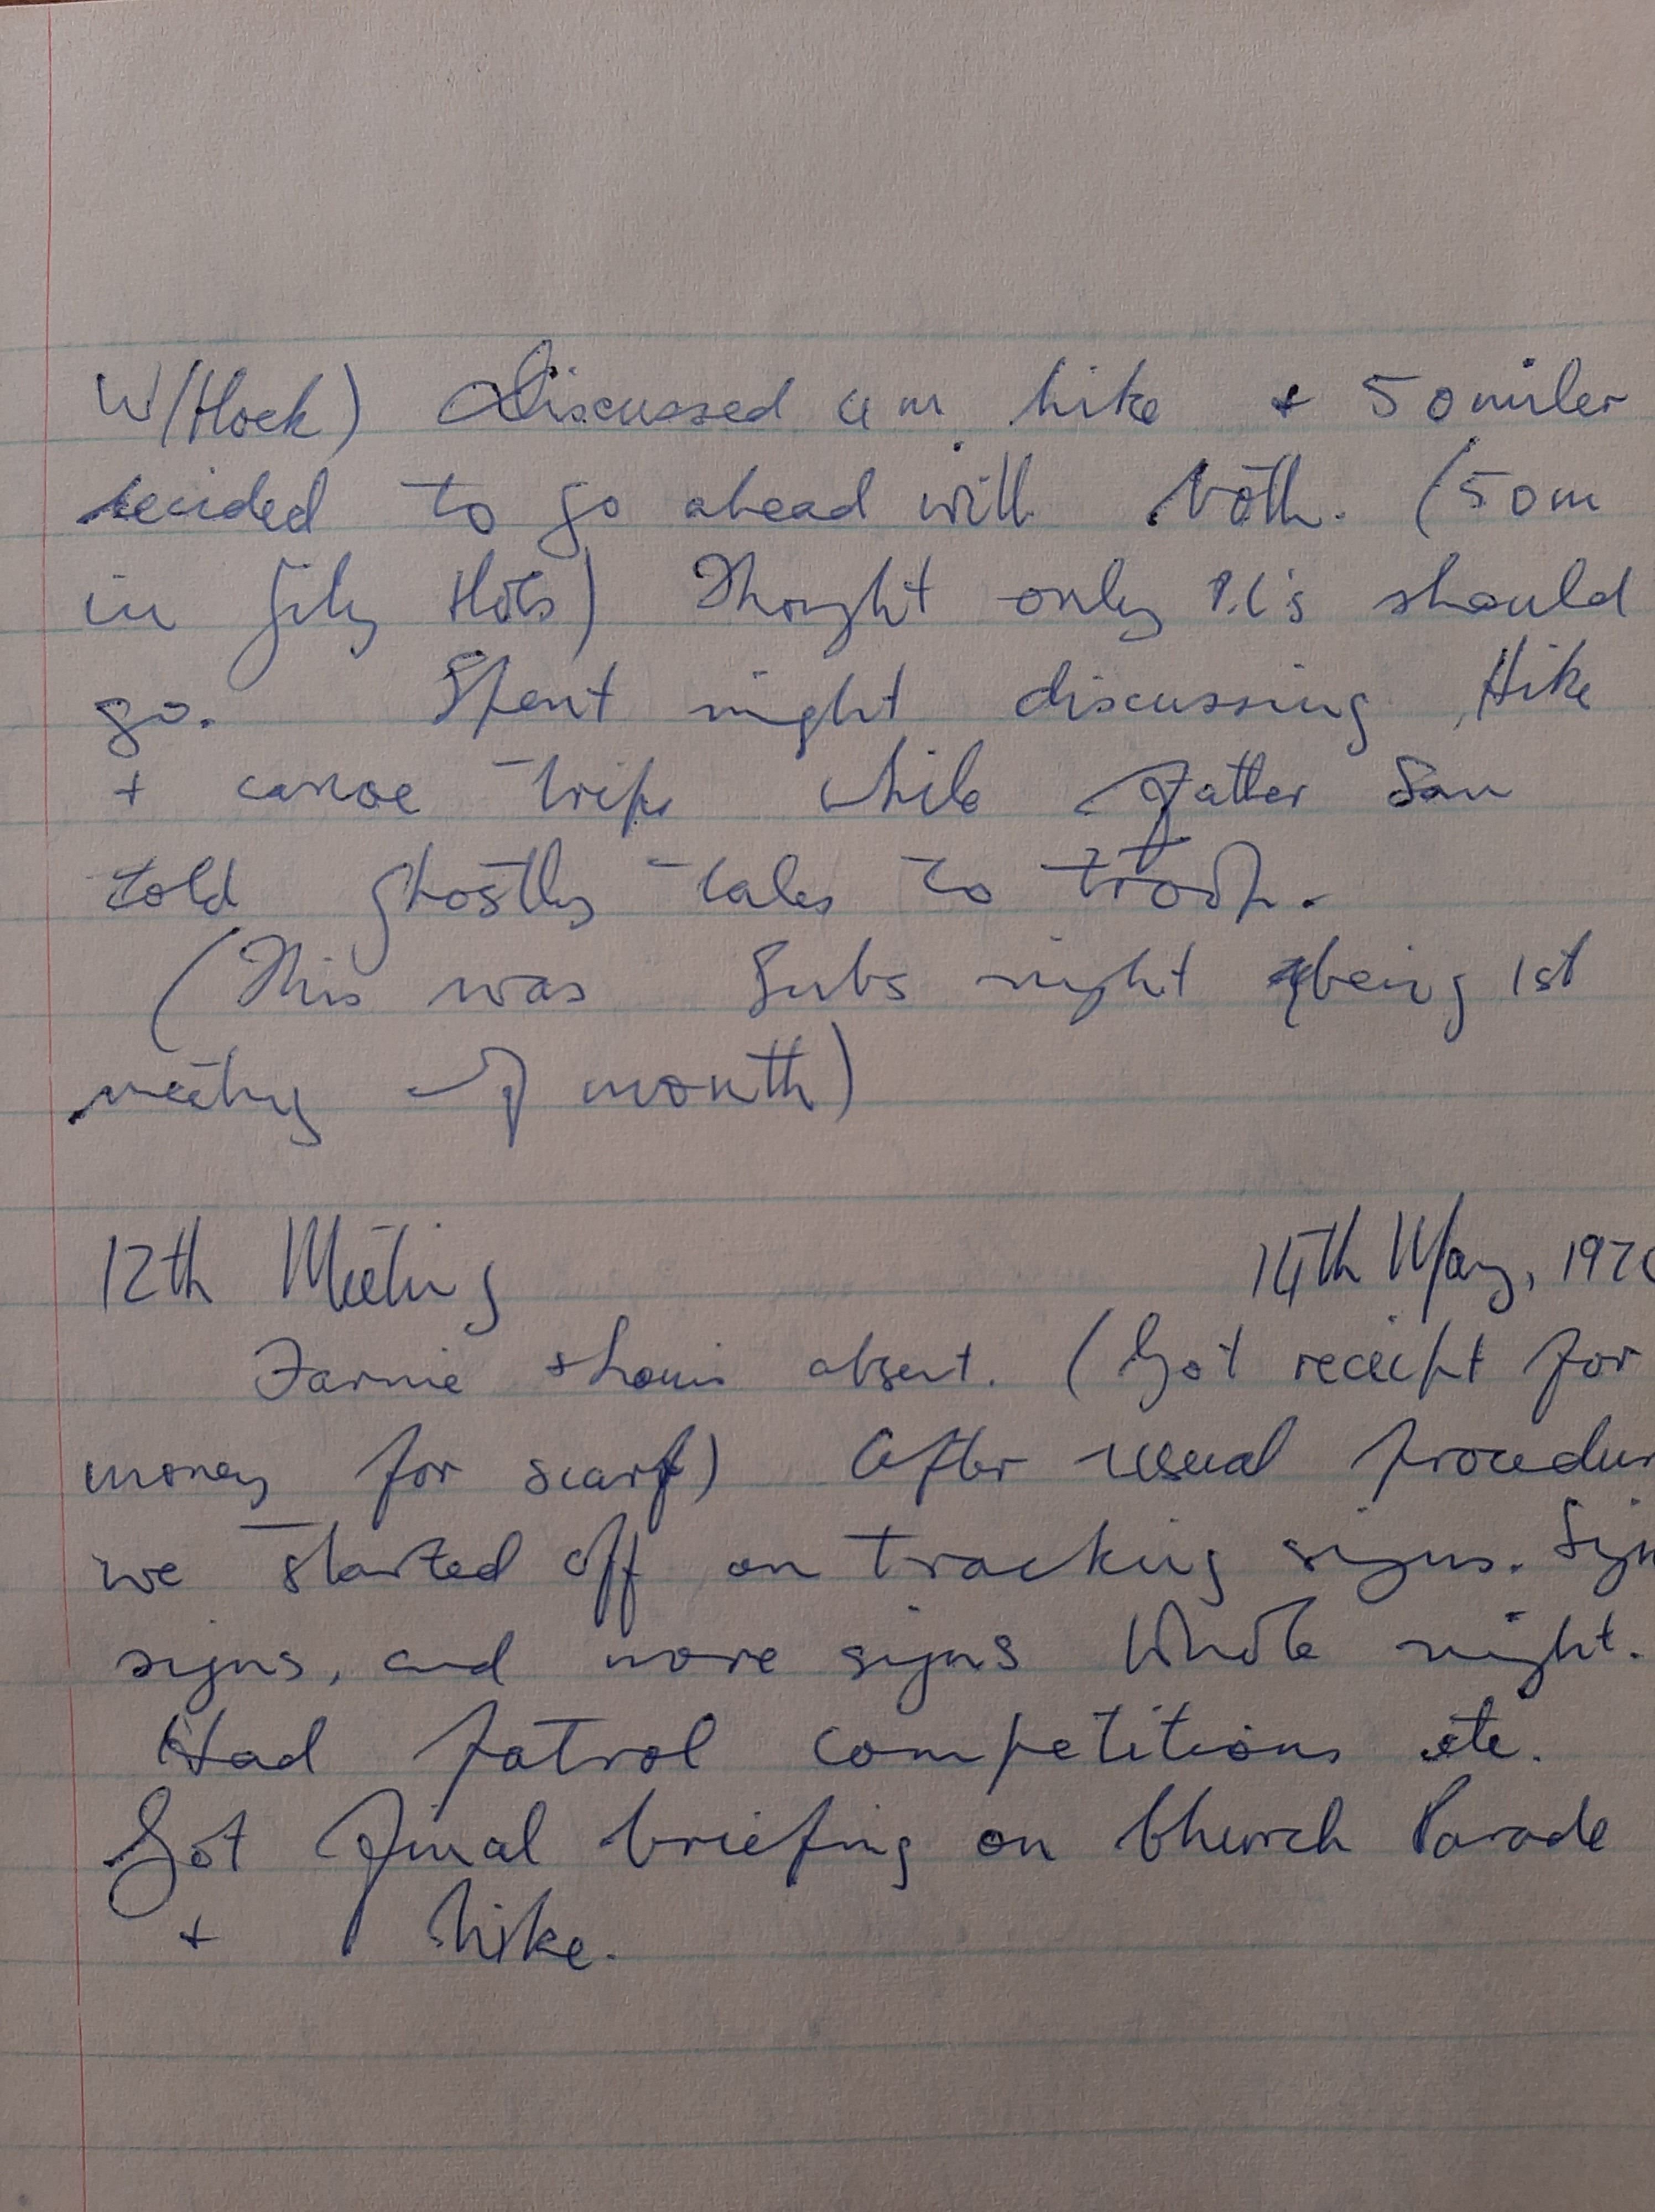 W/Hock) Discussed 4m hike + 50miler
decided to go ahead with both. (50m
in July Hols) Thought only P.L's should
go. Spent night discussing Hike
+ canoe trip while Father Sau
told ghostly tales to troop.
(This was Subs night being 1st
meeting of month)
12th Meeting 14th May, 197
Farnie absent. (Got receipt for
money for scarf) After usual procedur
we started off on tracking signs. Sign
signs, and more signs Whole night.
Had patrol competitions etc.
Got final briefing on Church Parade
+ hike.